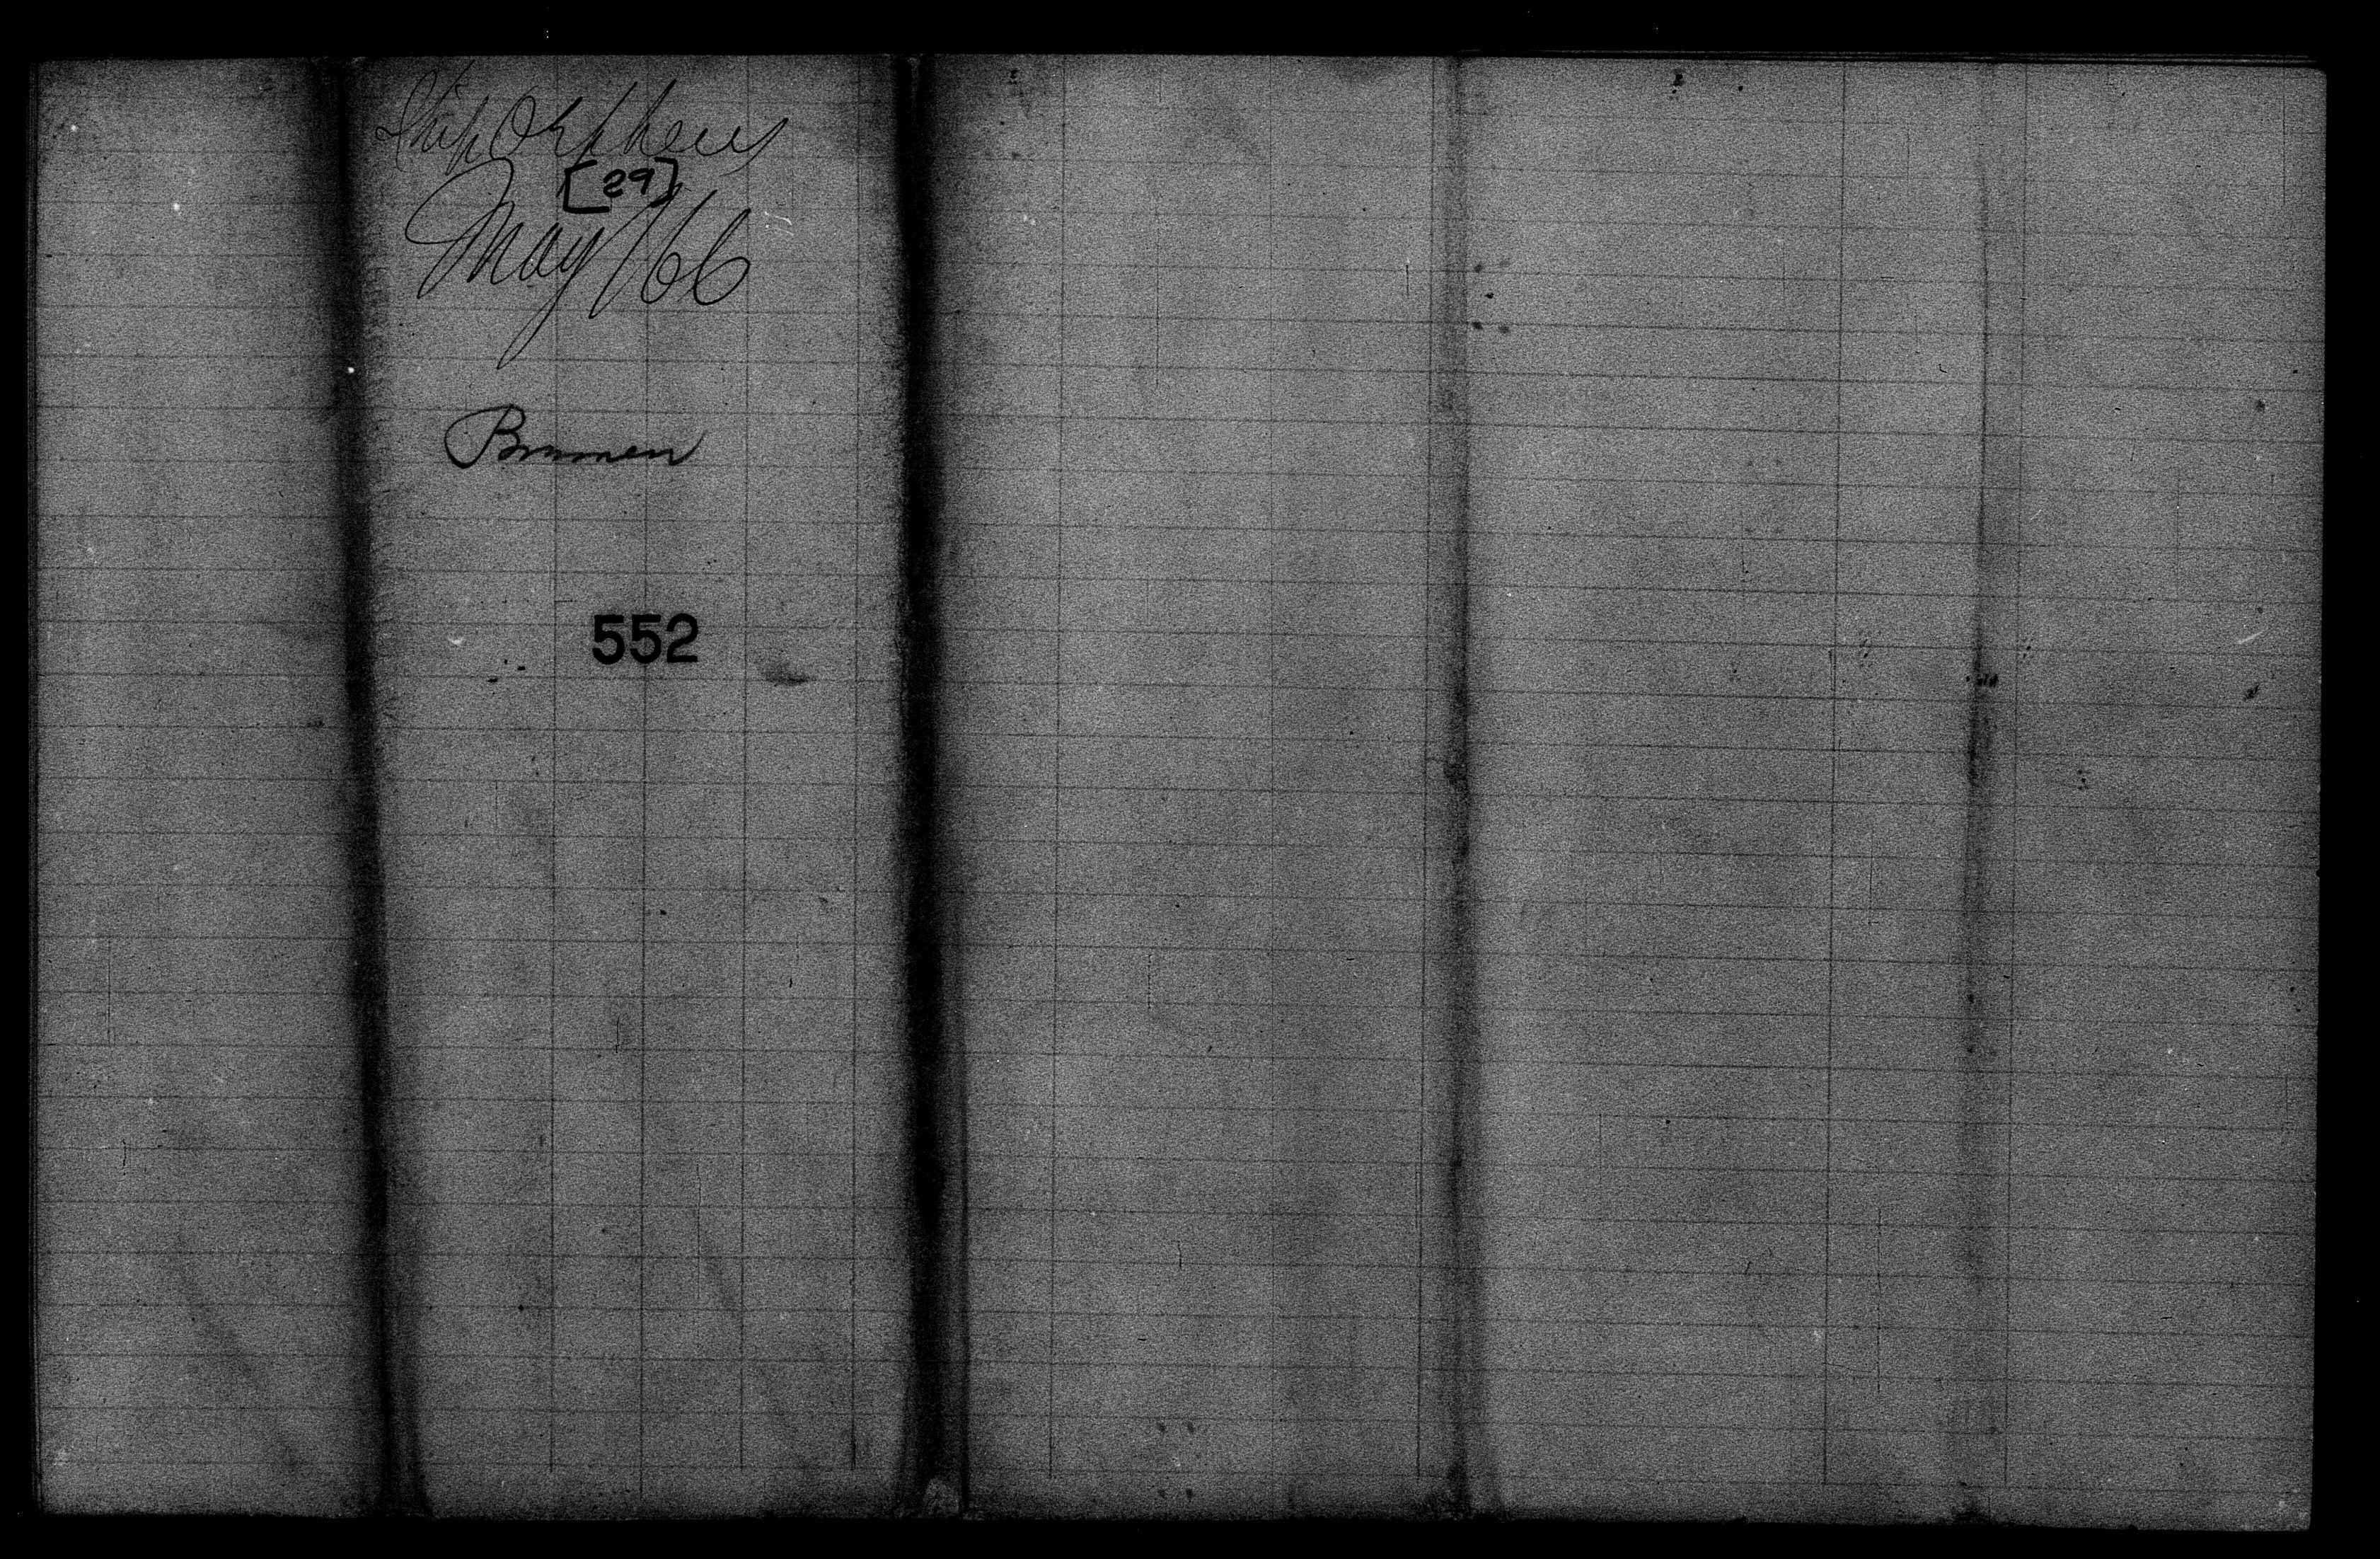 Ship Orpheus
[29]
May /66
Bremen
552